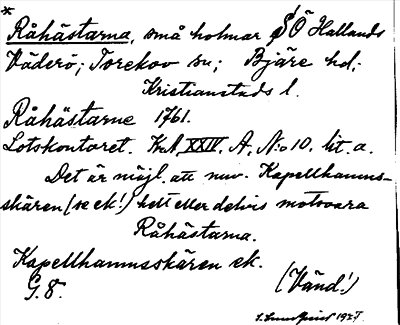 *
Råhästarna, små holmar SÖ Hallands
Väderö; Torekov sn; Bjäre hd;
Kristianstads l.
Råhästarne 1761.
Lotskontoret. Kul. XXIV. A. N:o 10. lit. a.
Det är möjl. att nuv. Kapellhamns-
skären (se ek!) helt eller delvis motsvara
Råhästarna.
Kapellhamnsskären ek.
G. 8.
(Vänd!)